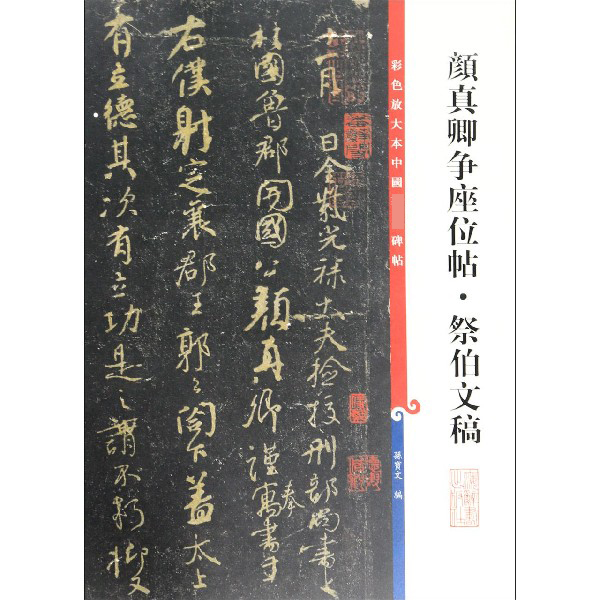 顔真卿争座位帖·祭伯文稿
彩色放大本中國 碑帖
孫寶文 編
十一月 日金紫光祿大夫檢校刑部尚書上
柱國魯郡開國公顏真卿謹奉寓書于
右僕射定襄郡王郭公閣下蓋太上
有立德其次有立功是之謂不朽抑又